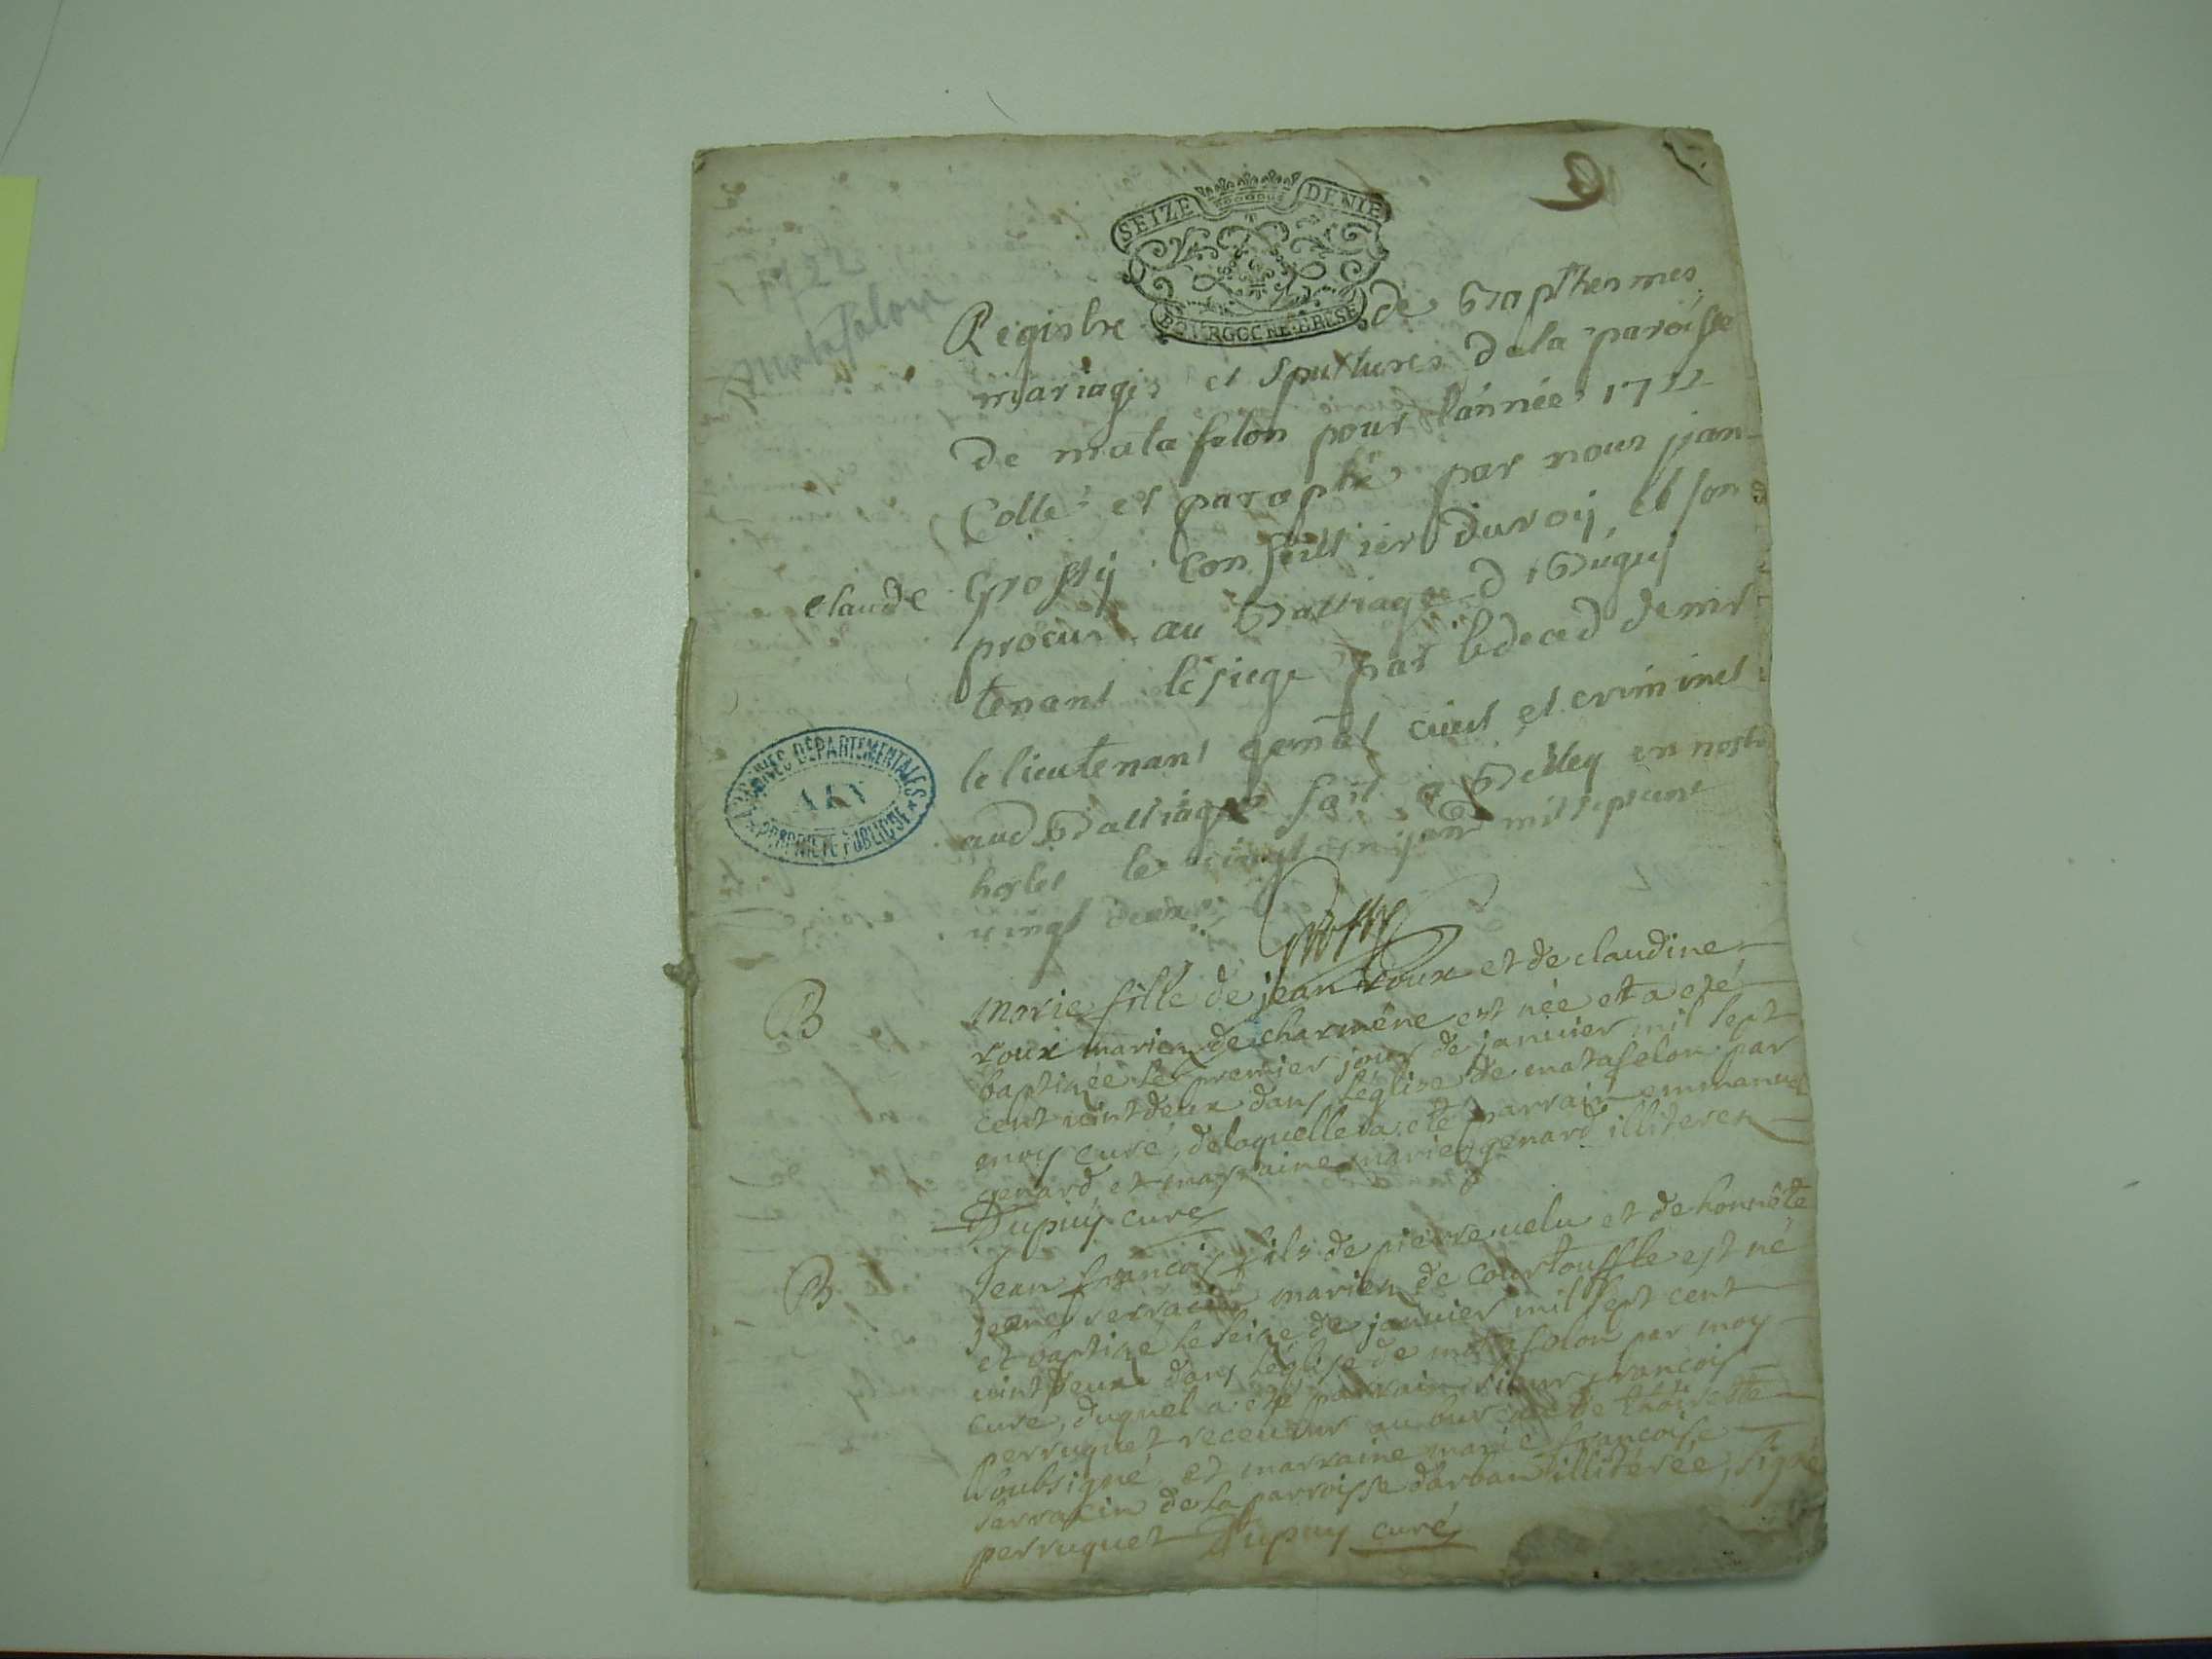 SEIZE DENIE
BOURGOGNE BRESSE
1722
Matafelon
Registre de Bapthesmes
mariages et Spultures de la paroisse
de mata felon pour l'année 1722
Collé et paraphé par nous jean
claude Grossy Conseillier du roy et son
procur au Balliage d Bugey
tenant le siege par le deced de mr
le lieutenant genãl ciuil et criminel
aud Balliage fait a Belley en nostre
hostel le vingt janr mil sept cent
vingt deux
Grossy
ARCHIVES DÉPARTEMENTALES
AIN
PROPRIÉTÉ PUBLIQUE
B
Marie fille de jean roux et de claudine
roux mariez de charmêne est née et a eté
baptizée le premier jour de januier mil sept
cent vint deux dans l'église de matafelon par
moy curé, de laquelle a eté parrain emmanuel
genard et marraine marie genard illiterez
Dupuy curé
B
Jean françois fils de pierre uelu et de honnête
jeane serracin mariez de courtouffle est né
et baptizé le seize de januier mil sept cent
uint deux dans l'église de matafelon par moy
curé, duquel a eté parrain sieur françois
perruquet receueur au bureau de thoirette
soubsigné, et marraine marie françoise
sarracin de la parroisse darban illiterée, signé
perruquet Dupuy curé